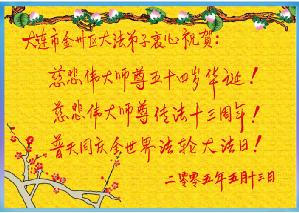 大连市金州区大法弟子衷心祝贺：
慈悲伟大师尊五十四岁华诞！
慈悲伟大师尊传法十三周年！
普天同庆全世界法轮大法日！
二零零五年五月十三日